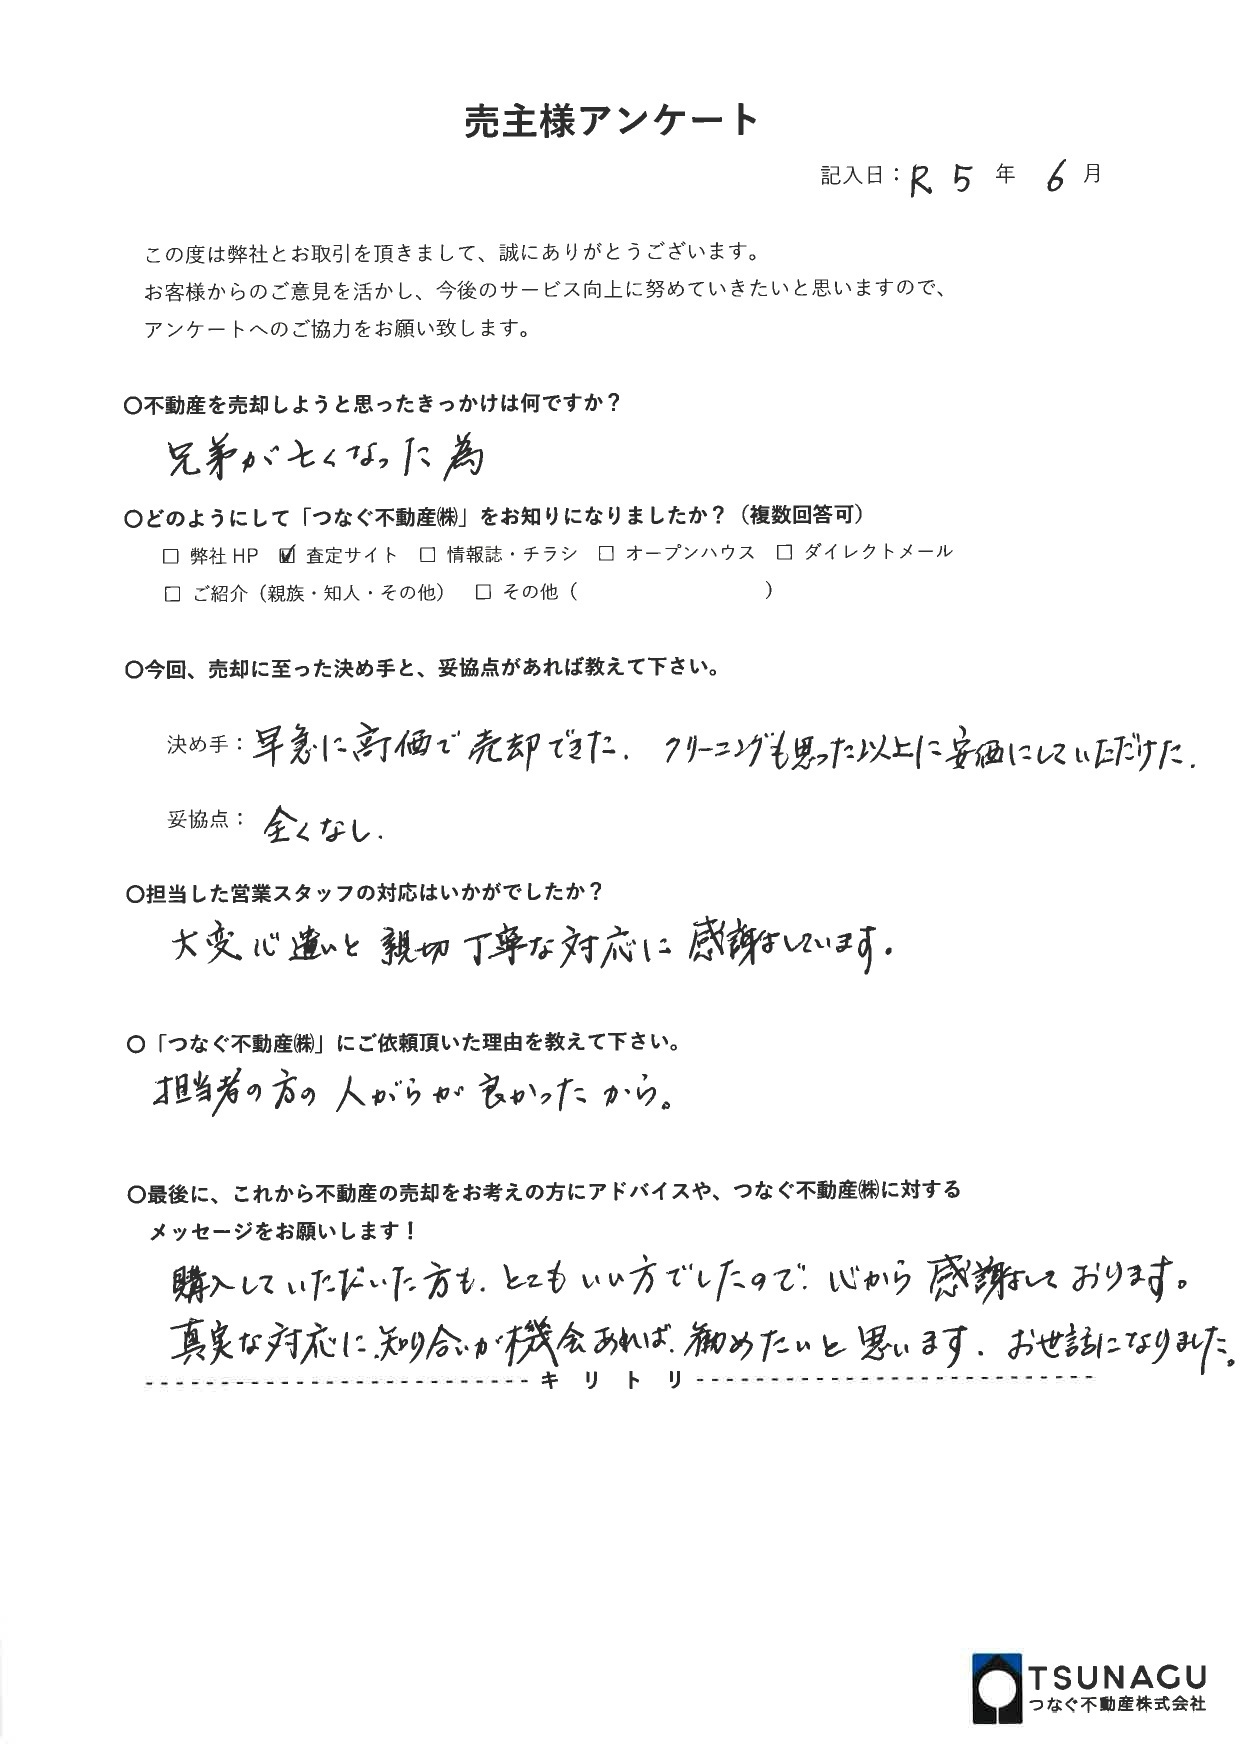 売主様アンケート
記入日：R 5 年 6 月
この度は弊社とお取引を頂きまして、誠にありがとうございます。
お客様からのご意見を活かし、今後のサービス向上に努めていきたいと思いますので、
アンケートへのご協力をお願い致します。
〇不動産を売却しようと思ったきっかけは何ですか？
兄弟が亡くなった為
〇どのようにして「つなぐ不動産㈱」をお知りになりましたか？（複数回答可）
□ 弊社 HP ☑ 査定サイト □ 情報誌・チラシ □ オープンハウス □ ダイレクトメール
□ ご紹介（親族・知人・その他） □ その他（ ）
〇今回、売却に至った決め手と、妥協点があれば教えて下さい。
決め手：早急に高価で売却できた. クリーニングも思った以上に安価にしていただけた.
妥協点：全くなし.
〇担当した営業スタッフの対応はいかがでしたか？
大変心遣いと親切丁寧な対応に感謝しています。
〇「つなぐ不動産㈱」にご依頼頂いた理由を教えて下さい。
担当者の方の人がらが良かったから。
〇最後に、これから不動産の売却をお考えの方にアドバイスや、つなぐ不動産㈱に対する
メッセージをお願いします！
購入していただいた方も、とてもいい方でしたので、心から感謝しております。
真実な対応に、知り合いが機会あれば、勧めたいと思います、お世話になりました。
キリトリ
TSUNAGU
つなぐ不動産株式会社